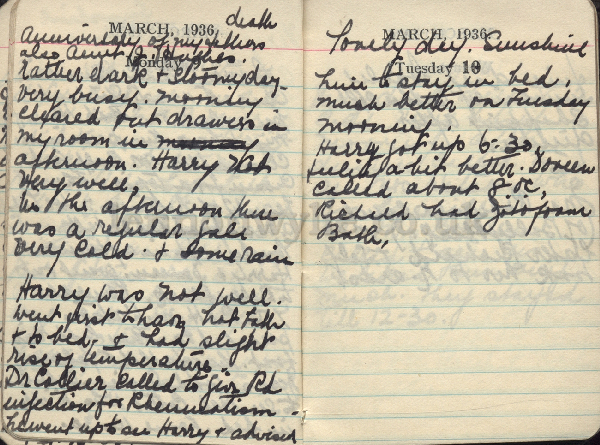 MARCH, 1936
death
Anniversary of my fathers
also Aunt J. Hughes.
Monday 9
Rather dark & gloomy day.
very busy. morning
cleared out drawers in
my room in morning
afternoon. Harry not
very well,
In the afternoon there
was a regular gale
very cold. & some rain
Harry was not well.
went just to have hot bath
& to bed, & had slight
rise of temperature.
Dr Collier called to give Rd
injection for Rheumatism -
he went up to see Harry & advised
MARCH, 1936
Lovely day. Sunshine
Tuesday 10
him to stay in bed.
much better on Tuesday
morning.
Harry got up 6-30,
feeling a bit better. Doreen
called about 8 oc,
Richard had
Bath,
12-30.